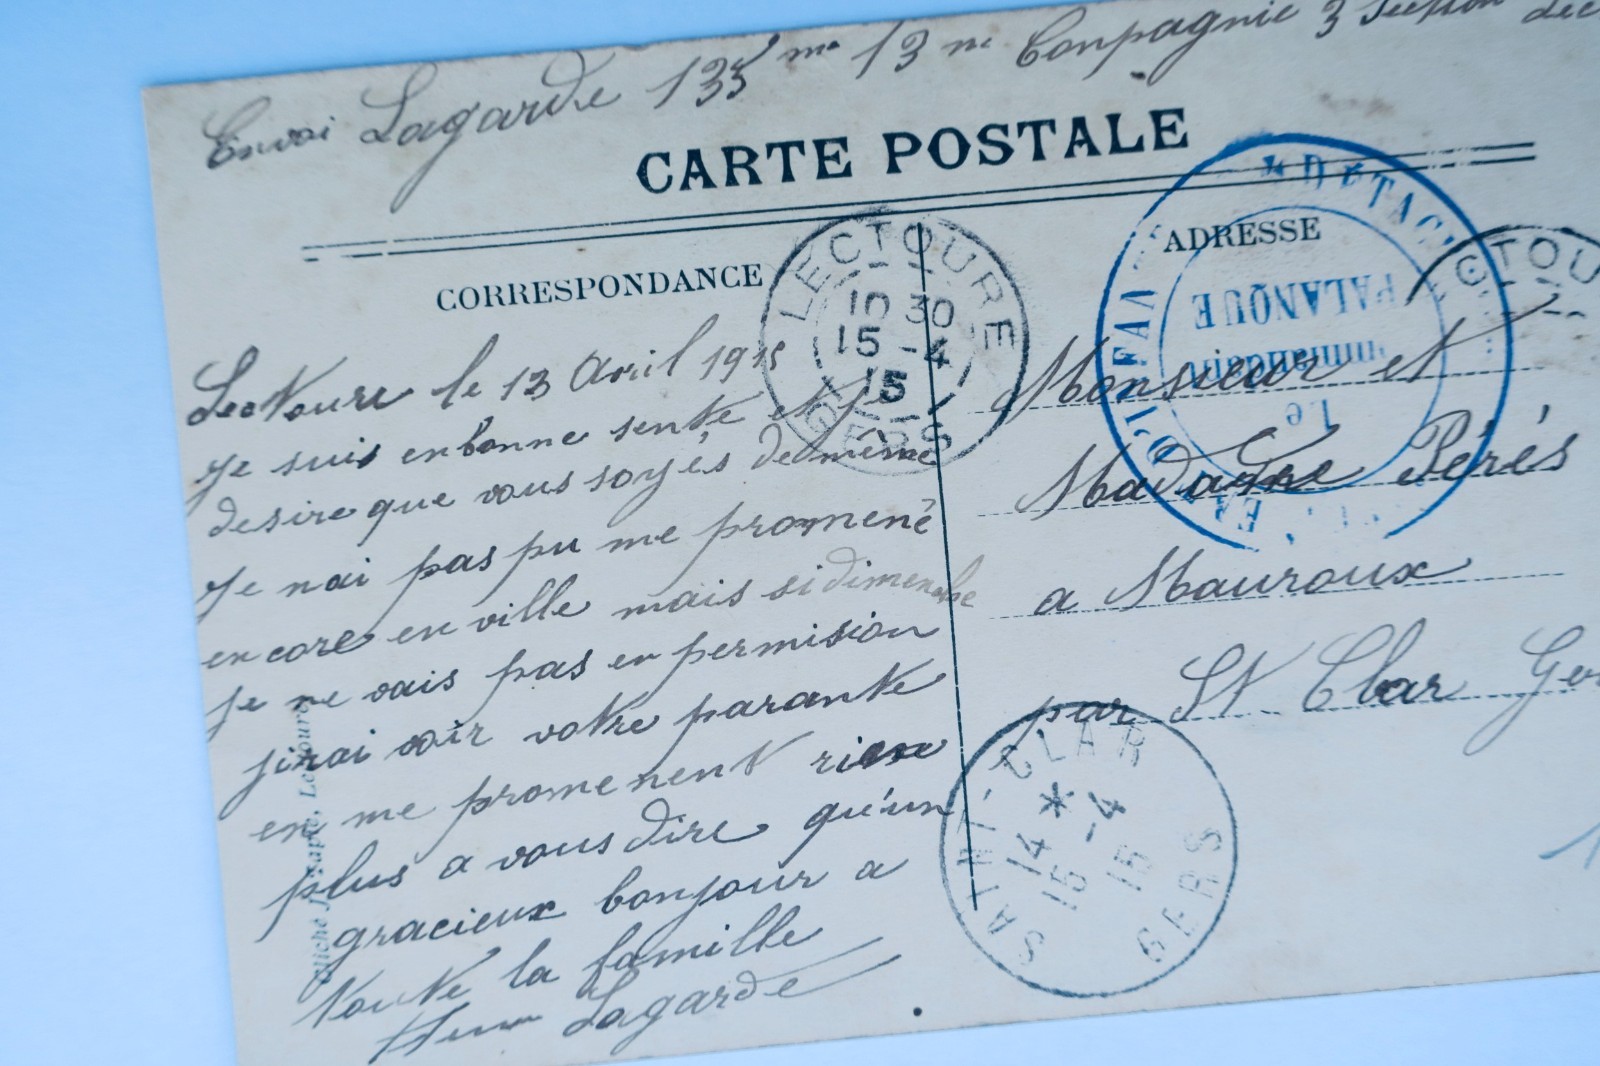 Envoi Lagarde 135 me 13 me Conpagnie 3 Section
CARTE POSTALE
CORRESPONDANCE
ADRESSE
LECTOURE
10 30
15 -4
15
GERS
Lectoure le 13 Avril 1915
je suis en bonne sente et je
desire que vous soyés de même
je nai pas pu me promené
encore en ville mais si dimenche
je ne vais pas en permision
jirai voir votre parante
en me promenent rien
plus a vous dire qu'un
gracieux bonjour a
toute la famille
Lagarde
Monsieur et
Madame Pérés
a Mauroux
par St Clar
DETAC
D'INFAN
Le
PALANQUE
CTOU
SAINT-CLAR
*
14 15 -4 15
GERS
Lectoure